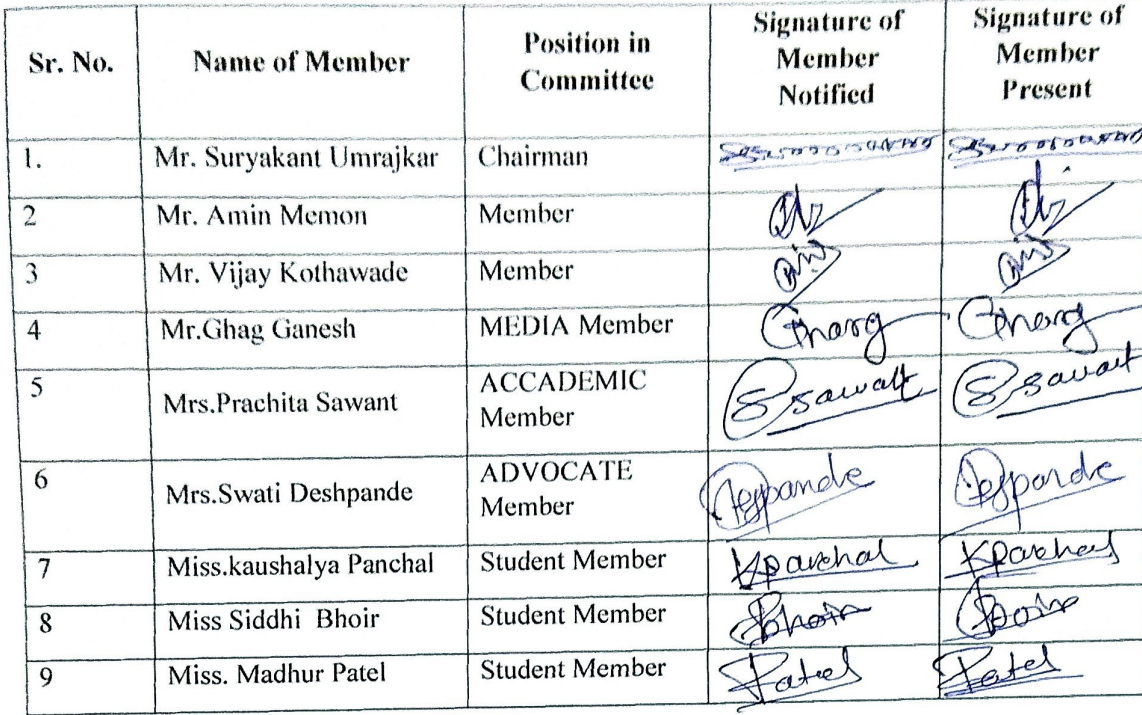 Sr. No. Name of Member Position in Committee Signature of Member Notified Signature of Member Present
1. Mr. Suryakant Umrajkar Chairman
2 Mr. Amin Memon Member
3 Mr. Vijay Kothawade Member
4 Mr.Ghag Ganesh MEDIA Member
5 Mrs.Prachita Sawant ACCADEMIC Member Sawant Sawant
6 Mrs.Swati Deshpande ADVOCATE Member
7 Miss.kaushalya Panchal Student Member KPanchal KPanchal
8 Miss Siddhi Bhoir Student Member Bhoir
9 Miss. Madhur Patel Student Member Patel Patel